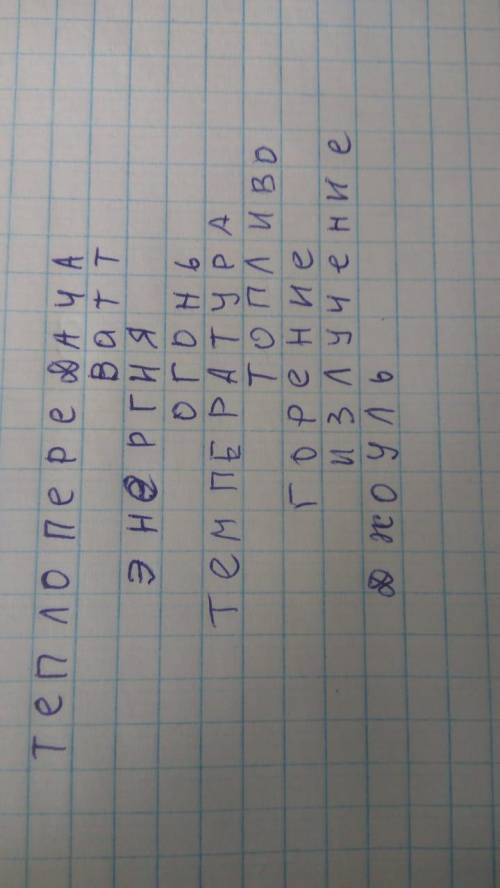 ТЕПЛОПЕРЕДАЧА
ВАТТ
ЭНЕРГИЯ
ОГОНЬ
ТЕМПЕРАТУРА
ТОПЛИВО
ГОРЕНИЕ
ИЗЛУЧЕНИЕ
ДЖОУЛЬ